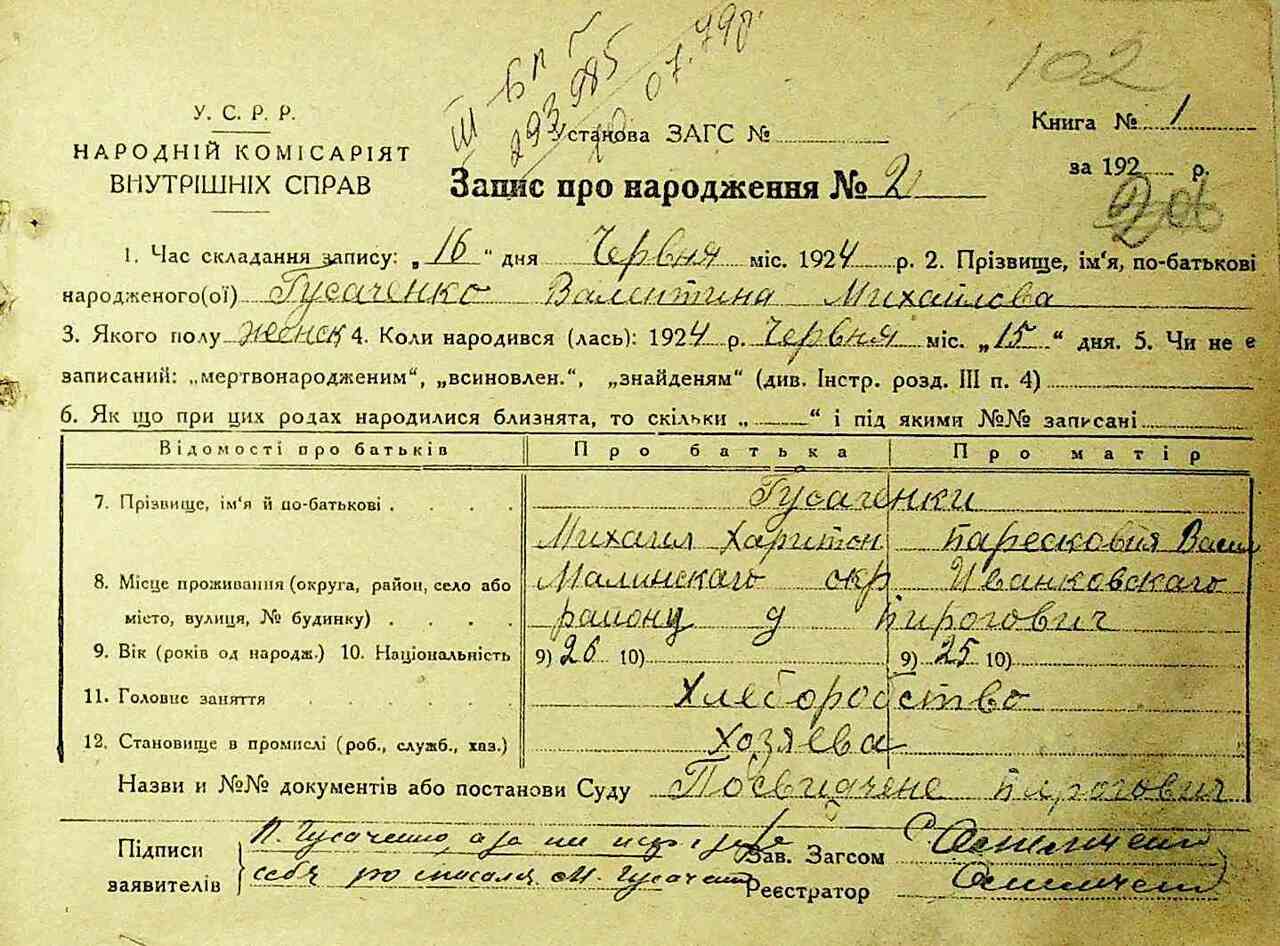 102
293985
07.79р.
У. С. Р. Р.
НАРОДНІЙ КОМІСАРІЯТ
ВНУТРІШНІХ СПРАВ
Установа ЗАГС №
Книга № 1
за 192 р.
Запис про народження № 2
1. Час складання запису: „16“ дня Червня міс. 1924 р. 2. Прізвище, ім‘я, по-батькові
народженого(ої) Гусаченко Валентина Михайлова
3. Якого полу женск 4. Коли народився (лась): 1924 р. Червня міс. „15“ дня. 5. Чи не є
записаний: „мертвонародженим“, „всиновлен.“, „знайденям“ (див. Інстр. розд. III п. 4)
6. Як що при цих родах народилися близнята, то скільки „ “ і під якими №№ записані
Відомості про батьків Про батька Про матір
7. Прізвище, ім‘я й по-батькові Гусаченки
Михаил Харитон Парасковия Васил
8. Місце проживання (округа, район, село або Малинскаго окр Иванковскаго
місто, вулиця, № будинку) району д Пирогович
9. Вік (років од народж.) 10. Національність 9) 26 10) 9) 25 10)
11. Головне заняття Хлебородство
12. Становище в промислі (роб., служб., хаз.) Хозяева
Назви и №№ документів або постанови Суду Посвидчене Пирогович
Підписи П. Гусаченко, а за Зав. Загсом
заявителів себя росписался М. Гусачен Реєстратор